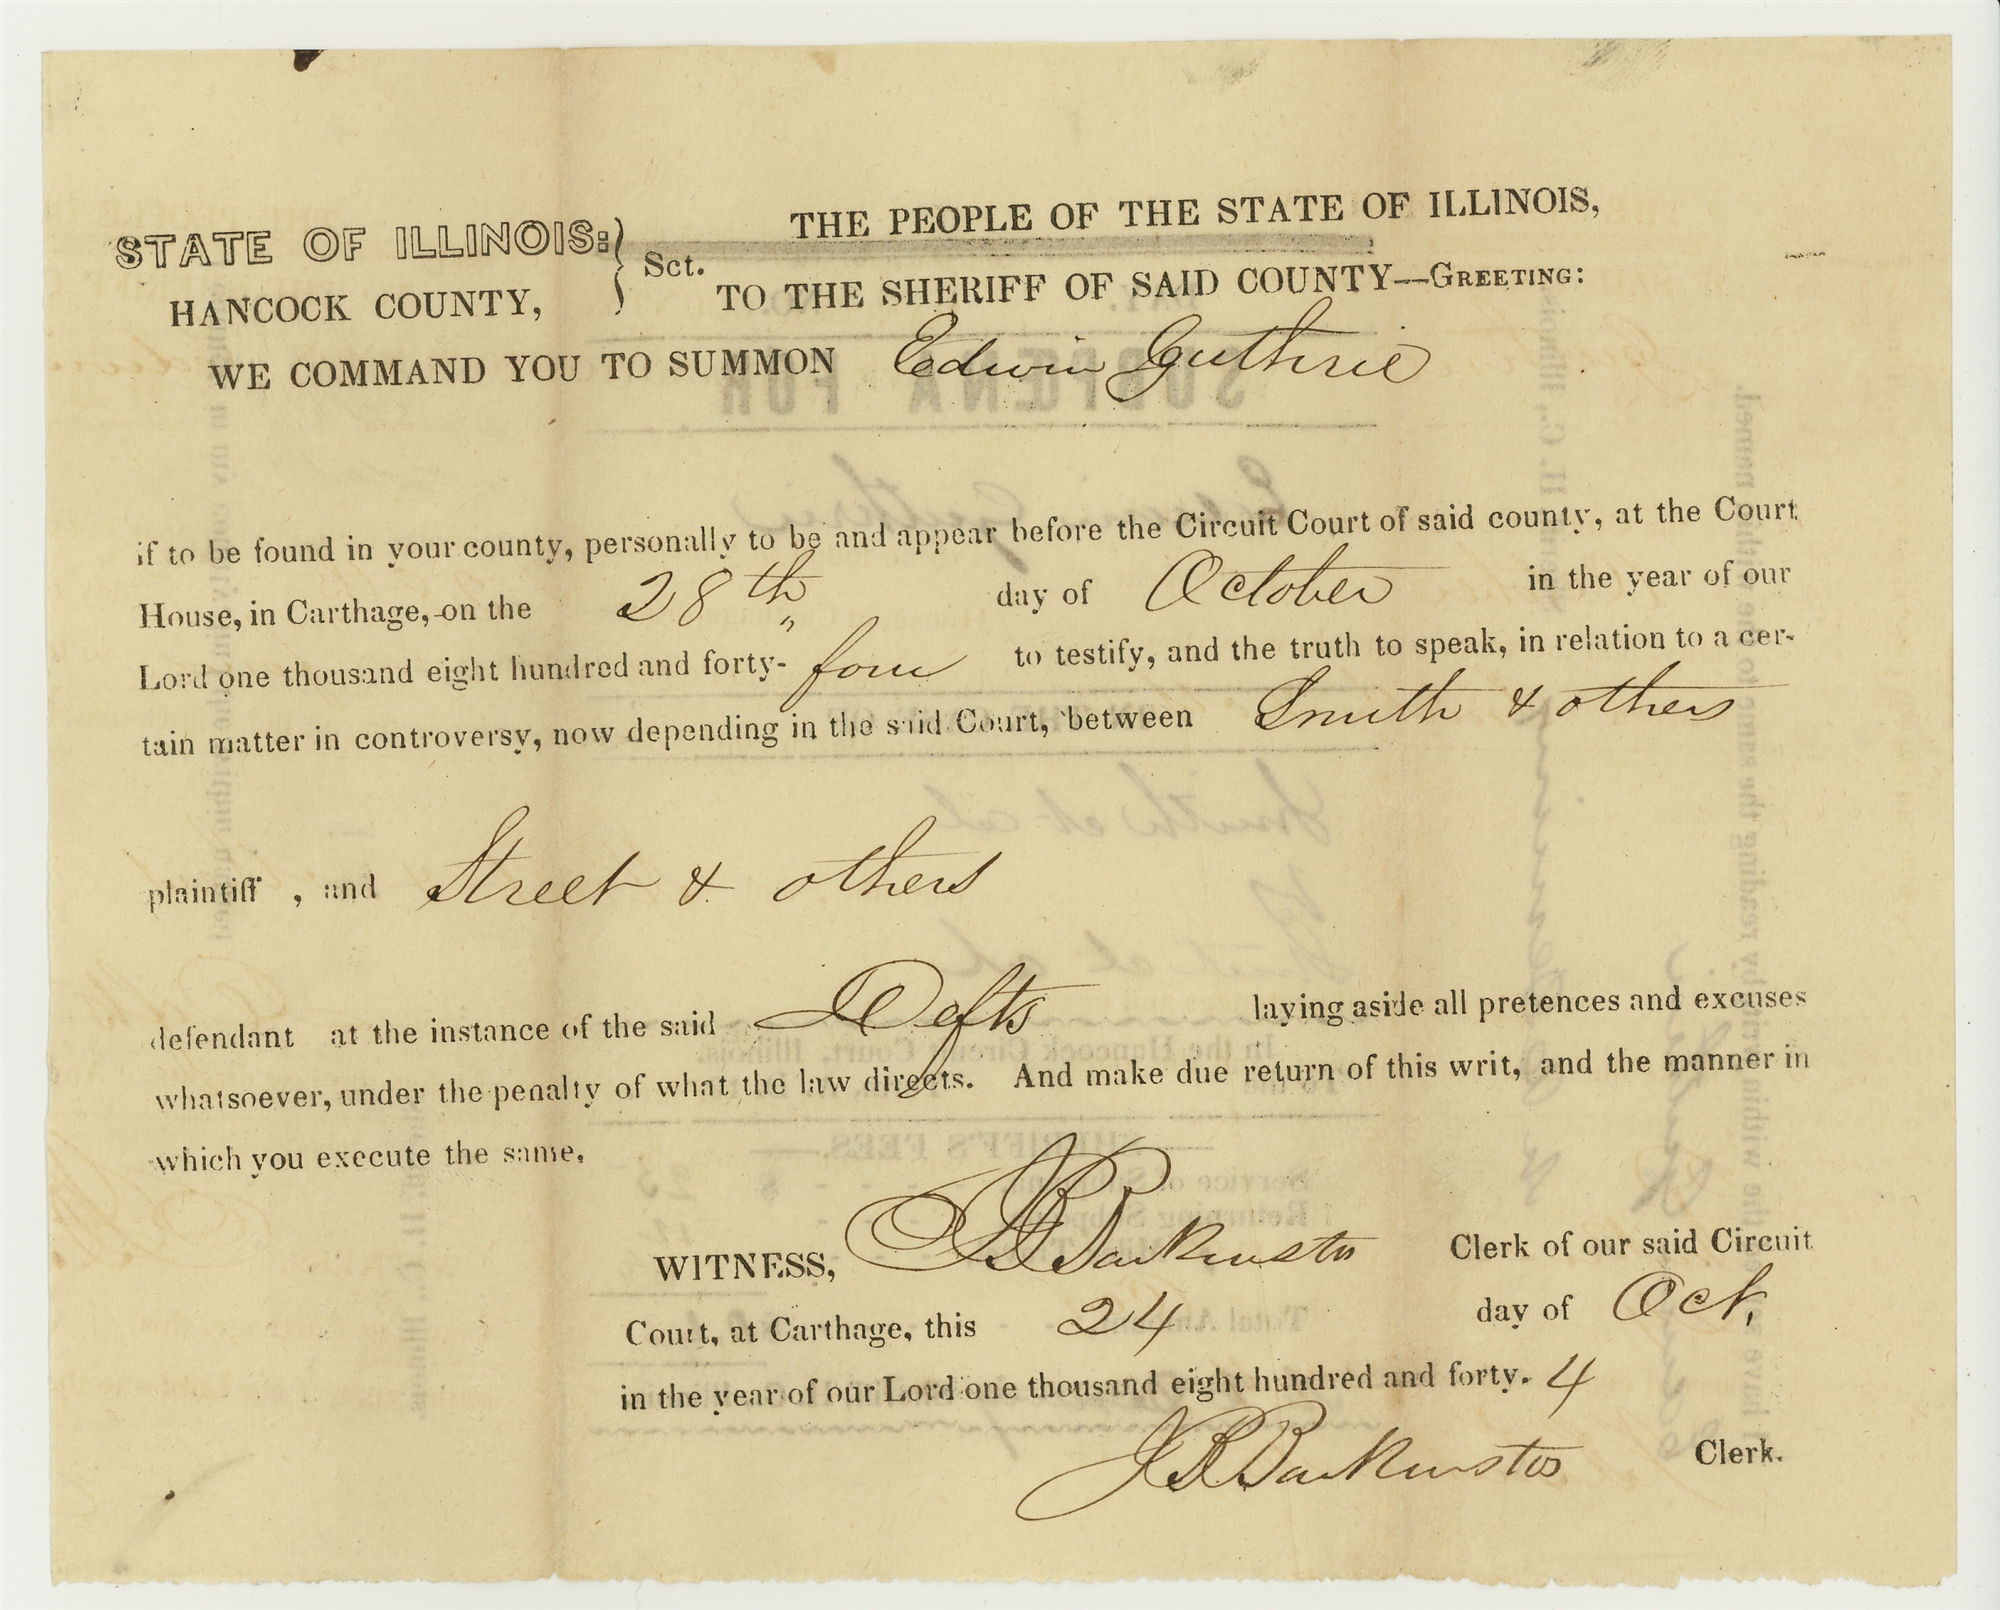 STATE OF ILLINOIS: } Sct. THE PEOPLE OF THE STATE OF ILLINOIS,
HANCOCK COUNTY, TO THE SHERIFF OF SAID COUNTY—GREETING:
WE COMMAND YOU TO SUMMON Edwin Guthrie
if to be found in your county, personally to be and appear before the Circuit Court of said county, at the Court
House, in Carthage, on the 28th day of October in the year of our
Lord one thousand eight hundred and forty-four to testify, and the truth to speak, in relation to a cer-
tain matter in controversy, now depending in the said Court, between Smith & others
plaintiff , and Street & others
defendant at the instance of the said Defts laying aside all pretences and excuses
whatsoever, under the penalty of what the law directs. And make due return of this writ, and the manner in
which you execute the same.
WITNESS, J B Backenstos Clerk of our said Circuit
Court, at Carthage, this 24 day of Oct.
in the year of our Lord one thousand eight hundred and forty-4
J B Backenstos Clerk.